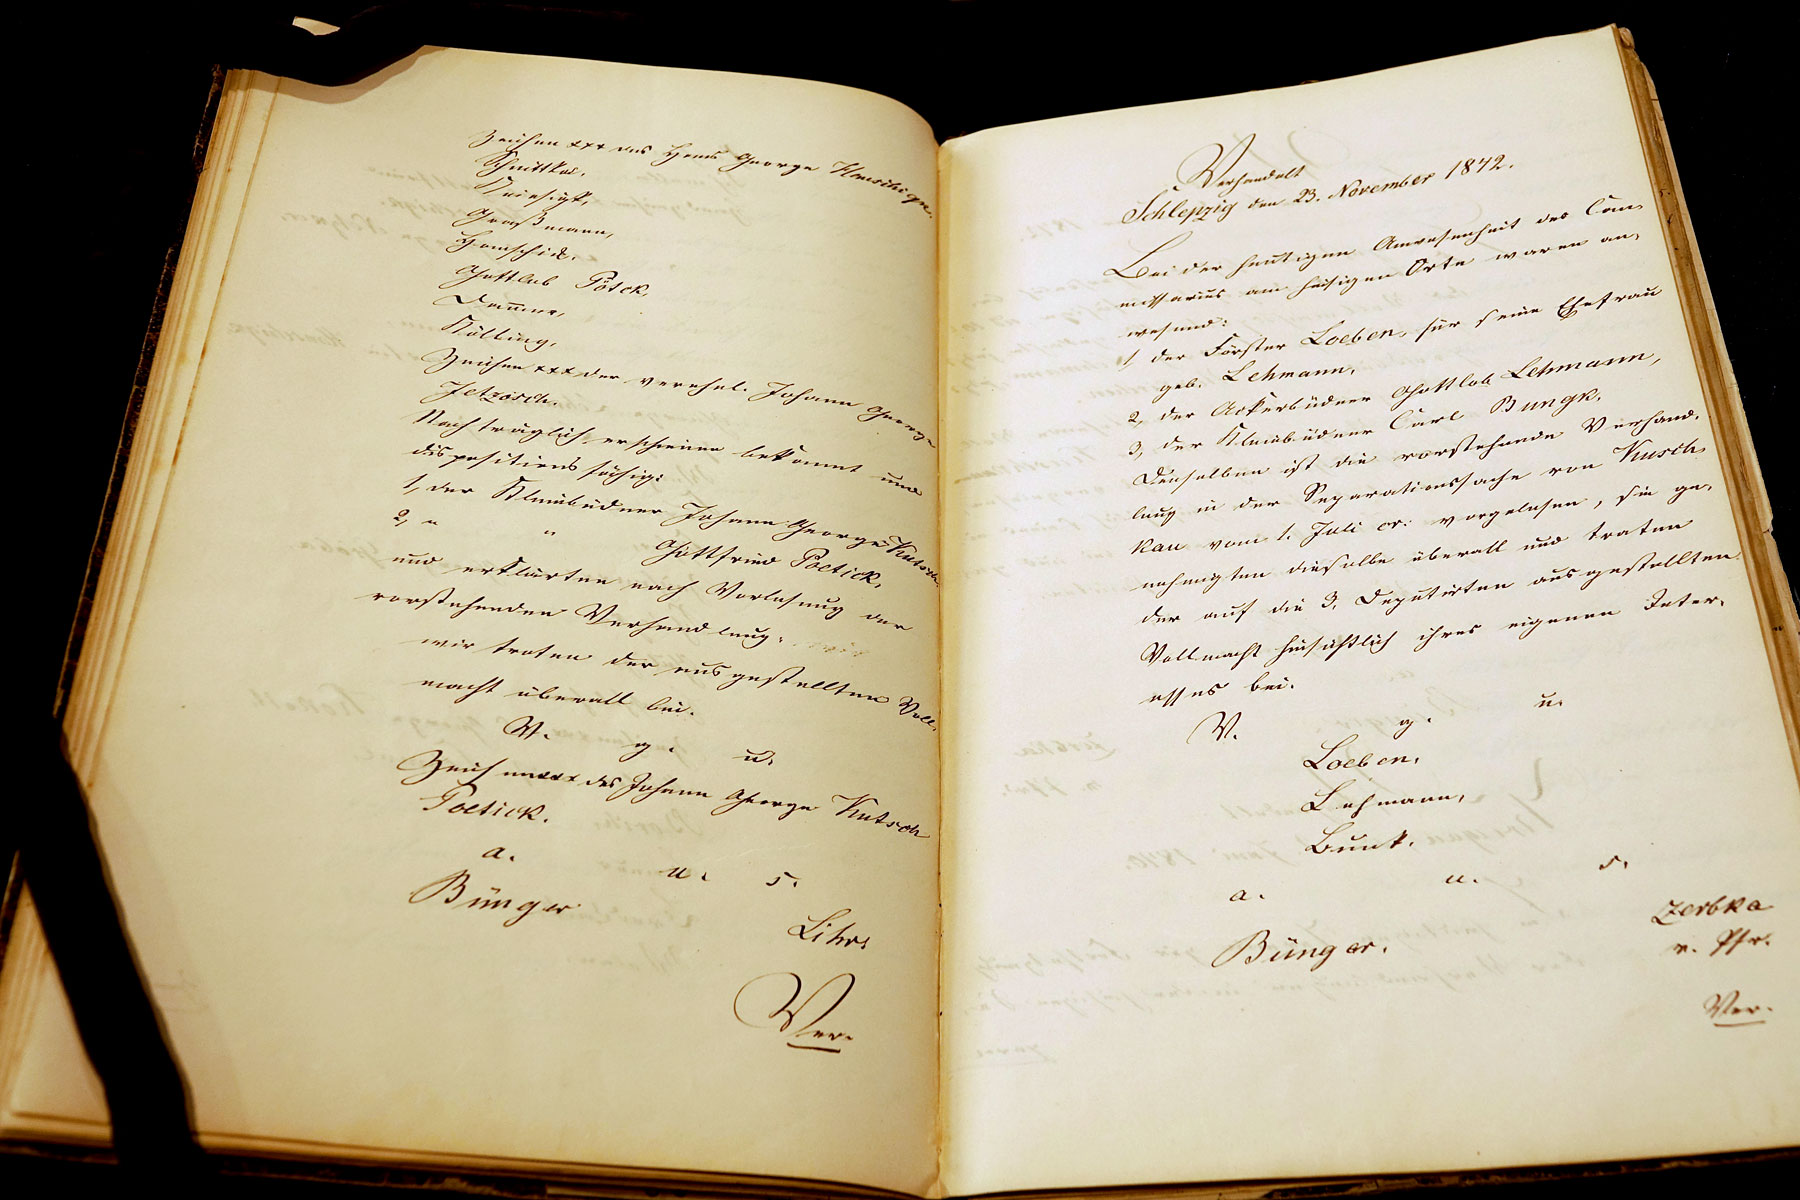 Zeichen +++ des Hans George Konschigr.
Schuttka.
Kriesigk,
Graßmann,
Hamschick.
Gottlob Pötck,
Damme,
Kölling,
Zeichen +++ der verehel. Johann George
Jetzosch.
Nachträglich erscheinen bekannt und
dispositionsfähig:
1, der Kleinbüdner Johann George Kutsch
2, " " Gottfried Poetick,
und erklärten nach Vorlesung der
vorstehenden Verhandlung:
wir treten der ausgestellten Voll-
macht überall bei.
V. g. u.
Zeichen +++ des Johann George Kutsch
Poetick.
a. u. s.
Bünger
Lihr.
Ver-
Verhandelt
Schlepzig den 23. November 1842.
Bei der heutigen Anwesenheit des Com-
missarius am hiesigen Orte waren an-
wesend:
1, der Förster Loeben, für seine Ehefrau
geb. Lehmann,
2, der Ackerbüdner Gottlob Lehmann,
3, der Kleinbüdner Carl Bungk.
Denselben ist die vorstehende Verhand-
lung in der Separationssache von Kusch-
kau vom 1. Juli cr. vorgelesen, sie ge-
nehmigten dieselbe überall und traten
der auf die 3, Deputirten ausgestellten
Vollmacht hinsichtlich ihres eigenen Inter-
esses bei.
V. g. u.
Loeben.
Lehmann,
Bunk.
a. u. s.
Bünger.
Zerbka
v. Pfr.
Ver-